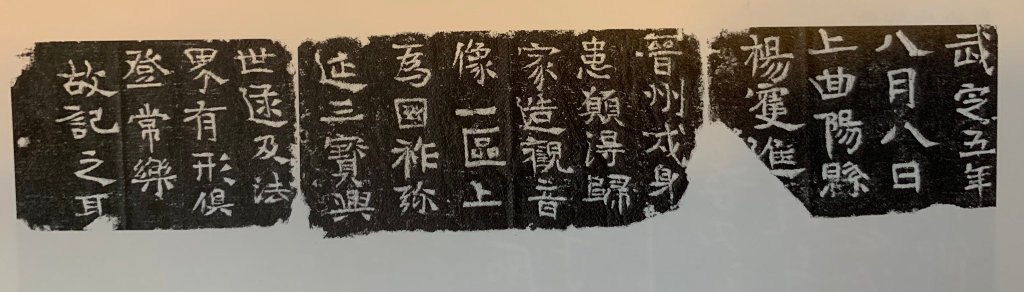 武定五年
八月八日
上曲陽縣
楊進
晉州戍身
患願得歸
家造觀音
像一區上
為國祚弥
延三寶興
世逮及法
界有形俱
登常樂
故記之耳